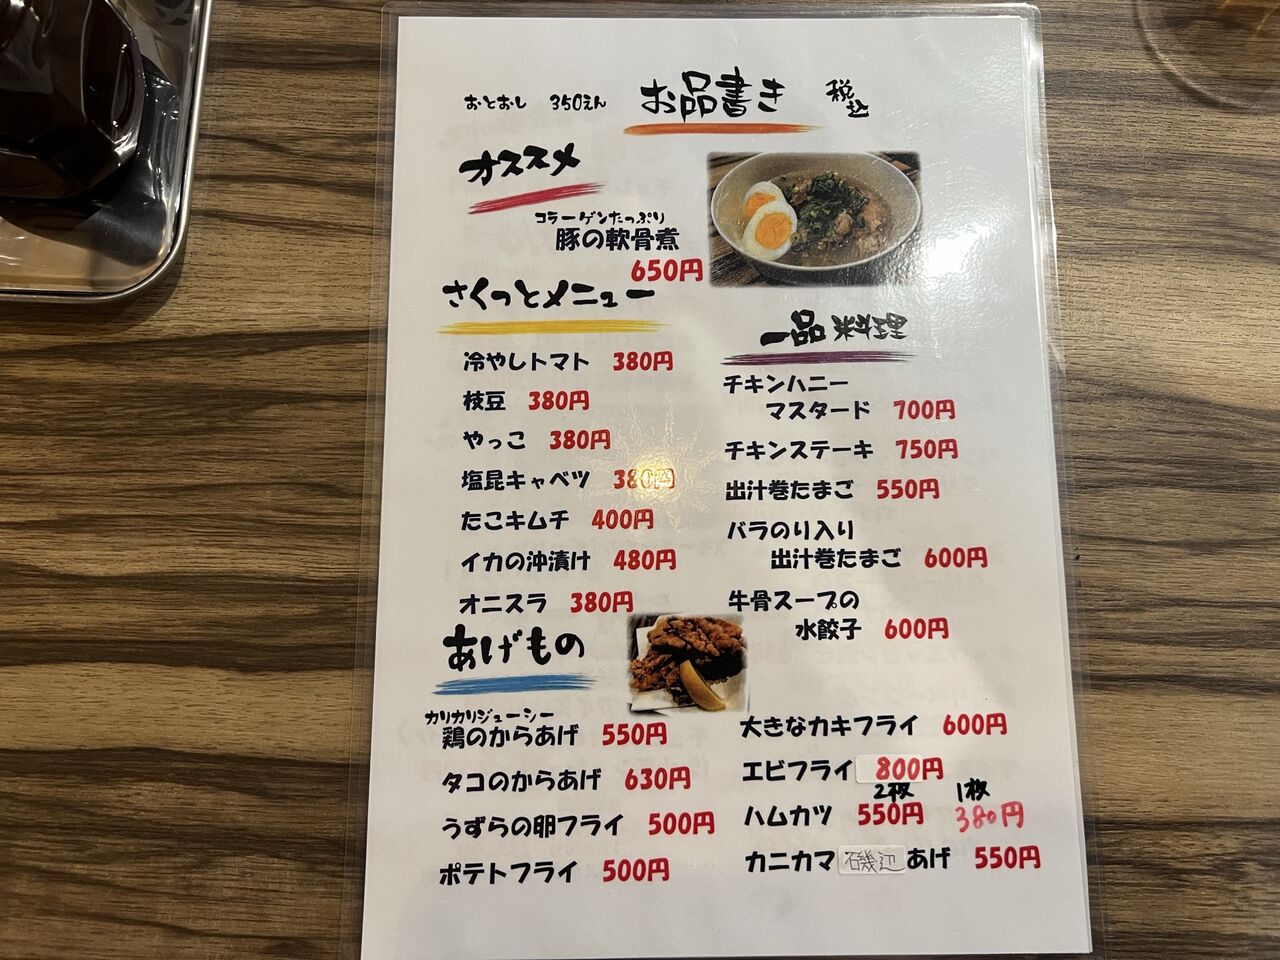 おとおし 350えん
お品書き
税込
オススメ
コラーゲンたっぷり
豚の軟骨煮
650円
さくっとメニュー
冷やしトマト 380円
枝豆 380円
やっこ 380円
塩昆キャベツ 380円
たこキムチ 400円
イカの沖漬け 480円
オニスラ 380円
一品料理
チキンハニー
マスタード 700円
チキンステーキ 750円
出汁巻たまご 550円
バラのり入り
出汁巻たまご 600円
牛骨スープの
水餃子 600円
あげもの
カリカリジューシー
鶏のからあげ 550円
タコのからあげ 630円
うずらの卵フライ 500円
ポテトフライ 500円
大きなカキフライ 600円
エビフライ 800円
2枚 1枚
ハムカツ 550円 380円
カニカマ磯辺あげ 550円